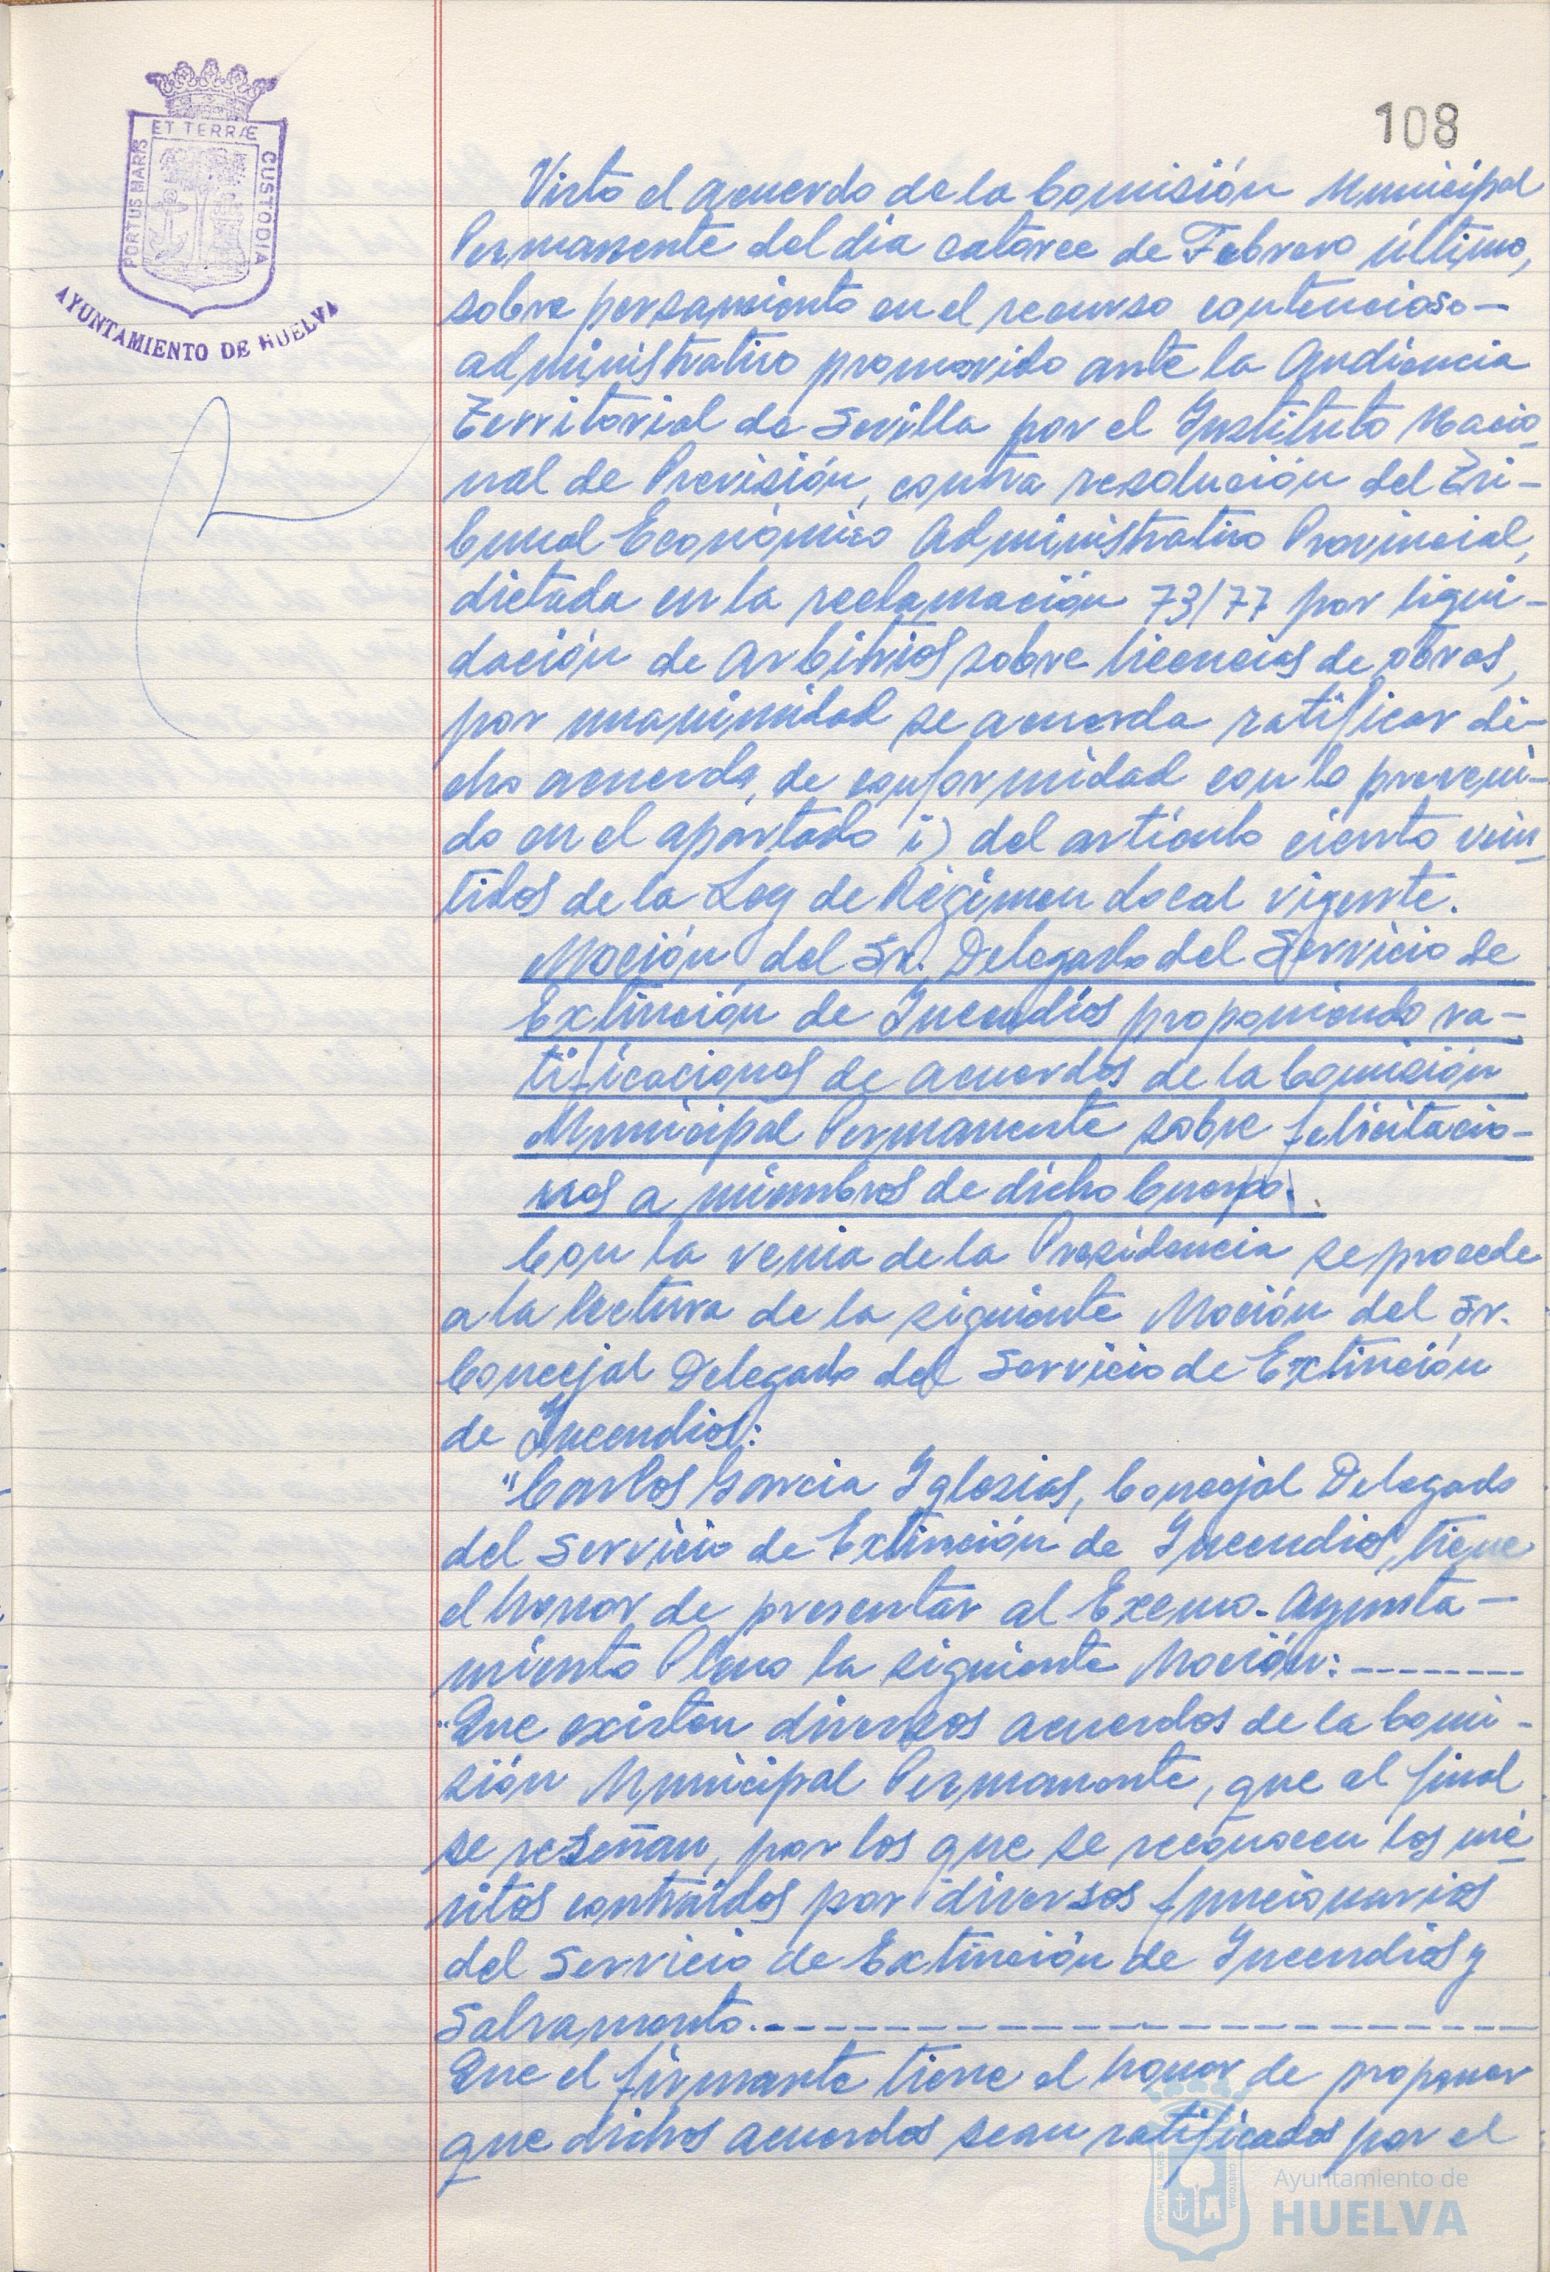 ET TERRÆ
PORTUS MARIS
CUSTODIA
AYUNTAMIENTO DE HUELVA
108
Visto el acuerdo de la Comisión Municipal
Permanente del día catorce de Febrero último,
sobre personamiento en el recurso contencioso-
administrativo promovido ante la Audiencia
Territorial de Sevilla por el Instituto Nacio-
nal de Previsión, contra resolución del Tri-
bunal Económico Administrativo Provincial,
dictada en la reclamación 73/77 por liqui-
dación de Arbitrios sobre licencias de obras,
por unanimidad se acuerda ratificar di-
cho acuerdo, de conformidad con lo preveni-
do en el apartado i) del artículo ciento vein-
tidos de la Ley de Régimen Local vigente.
Moción del Sr. Delegado del Servicio de
Extinción de Incendios proponiendo ra-
tificaciones de acuerdos de la Comisión
Municipal Permanente sobre felicitacio-
nes a miembros de dicho Cuerpo.
Con la venia de la Presidencia se procede
a la lectura de la siguiente Moción del Sr.
Concejal Delegado del Servicio de Extinción
de Incendios:
"Carlos García Iglesias, Concejal Delegado
del Servicio de Extinción de Incendios, tiene
el honor de presentar al Excmo. Ayunta-
miento Pleno la siguiente Moción: --------
"Que existen diversos acuerdos de la Comi-
sión Municipal Permanente, que al final
se reseñan, por los que se reconocen los mé-
ritos contraídos por diversos funcionarios
del Servicio de Extinción de Incendios y
Salvamento.----------------
Que el firmante tiene el honor de proponer
que dichos acuerdos sean ratificados por el
Ayuntamiento de
HUELVA